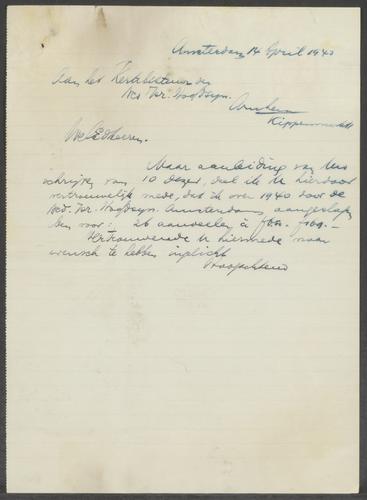 Amsterdam 14 April 1940
Aan het Kerkbestuur der
Ned. Isr. Hoofdsyn.
Arnhem
Kippenmarkt
WelEdheeren.
Naar aanleiding van Uw
schrijven van 10 dezer, deel ik U hierdoor
vertrouwelijk mede, dat ik over 1940 door de
Ned. Isr. Hoofdsyn. Amsterdam, aangeslagen
ben voor: 26 aandeelen à
Vertrouwende U hiermede naar
wensch te hebben ingelicht
Hoogachtend